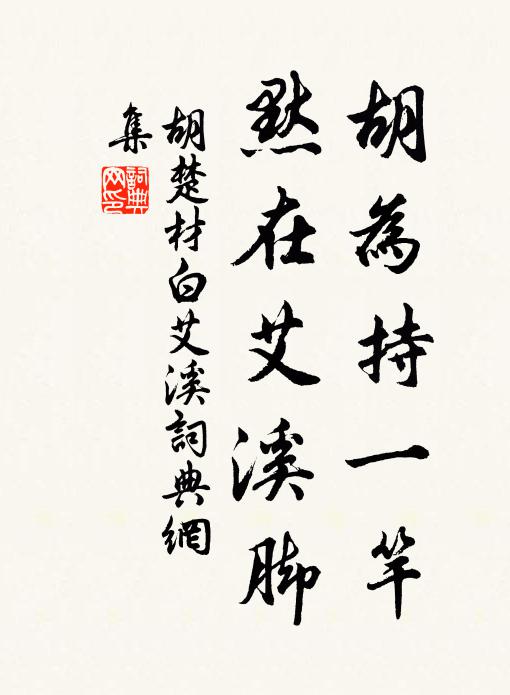 胡為持一竿
默在艾溪脚
胡楚材白艾溪詞典網
集
詞典
网印